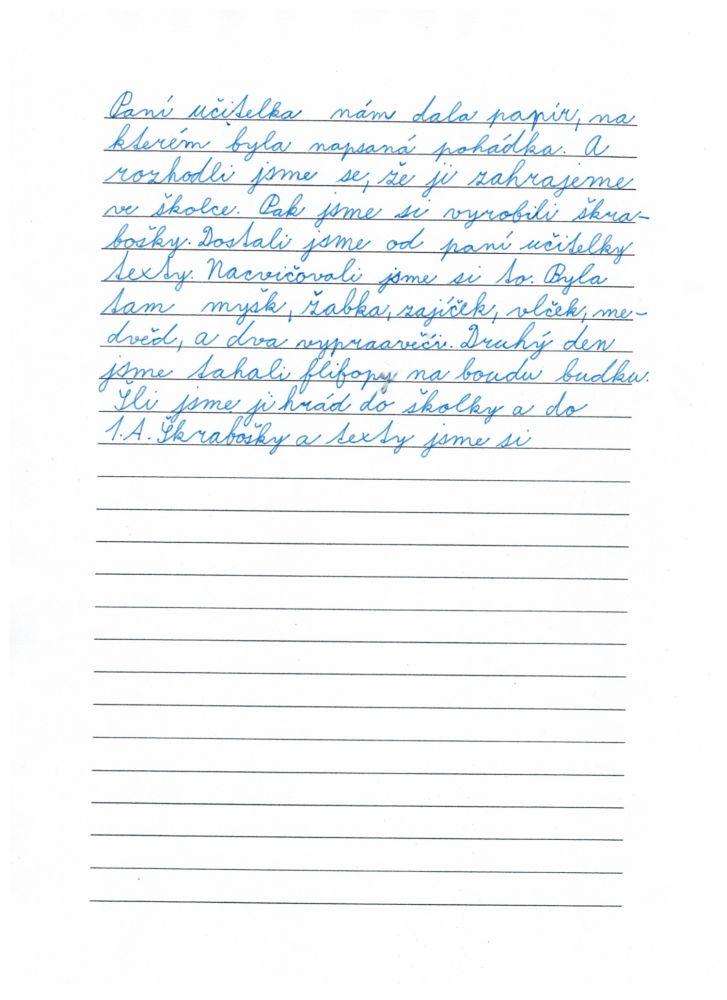 Paní učitelka nám dala papír, na
kterém byla napsaná pohádka. A
rozhodli jsme se, že ji zahrajeme
ve školce. Pak jsme si vyrobili škra-
bošky. Dostali jsme od paní učitelky
texty. Nacvičovali jsme si to. Byla
tam myšk, žabka, zajíček, vlček, me-
dvěd, a dva vypraavěči. Druhý den
jsme tahali flifopy na boudu budku.
Šli jsme ji hrád do školky a do
1. A. Škrabošky a texty jsme si